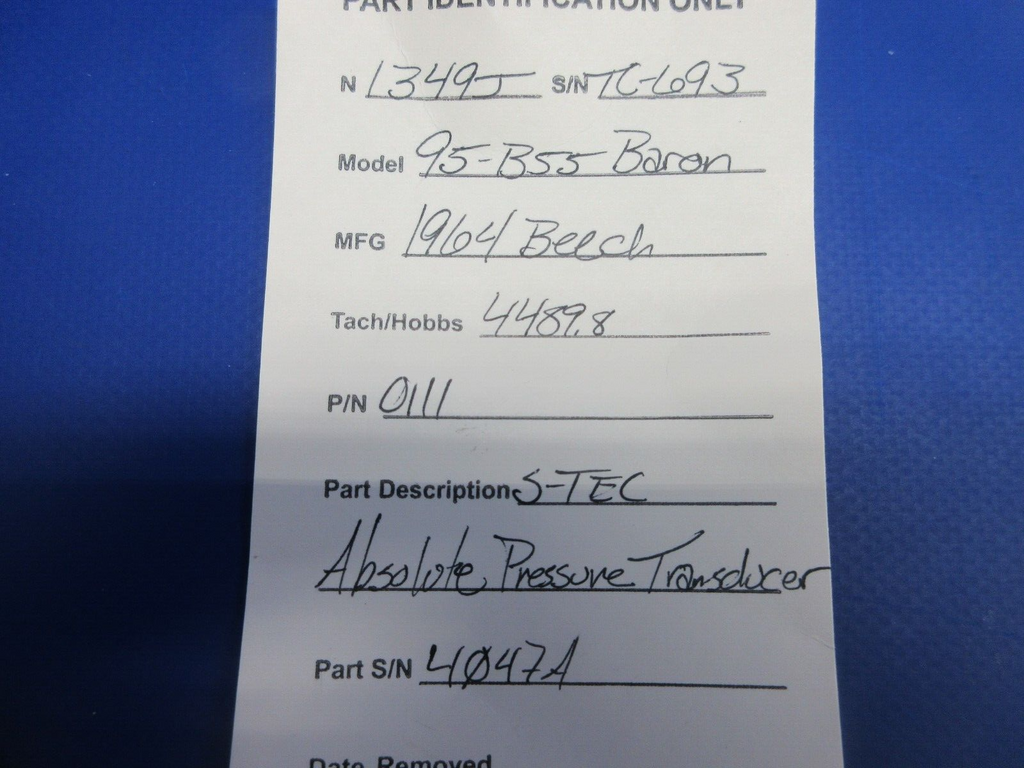 PART IDENTIFICATION ONLY
N 1349J S/N TC-693
Model 95-B55 Baron
MFG 1964 Beech
Tach/Hobbs 4489.8
P/N 0111
Part Description S-TEC
Absolute Pressure Transducer
Part S/N 4047A
Date Removed